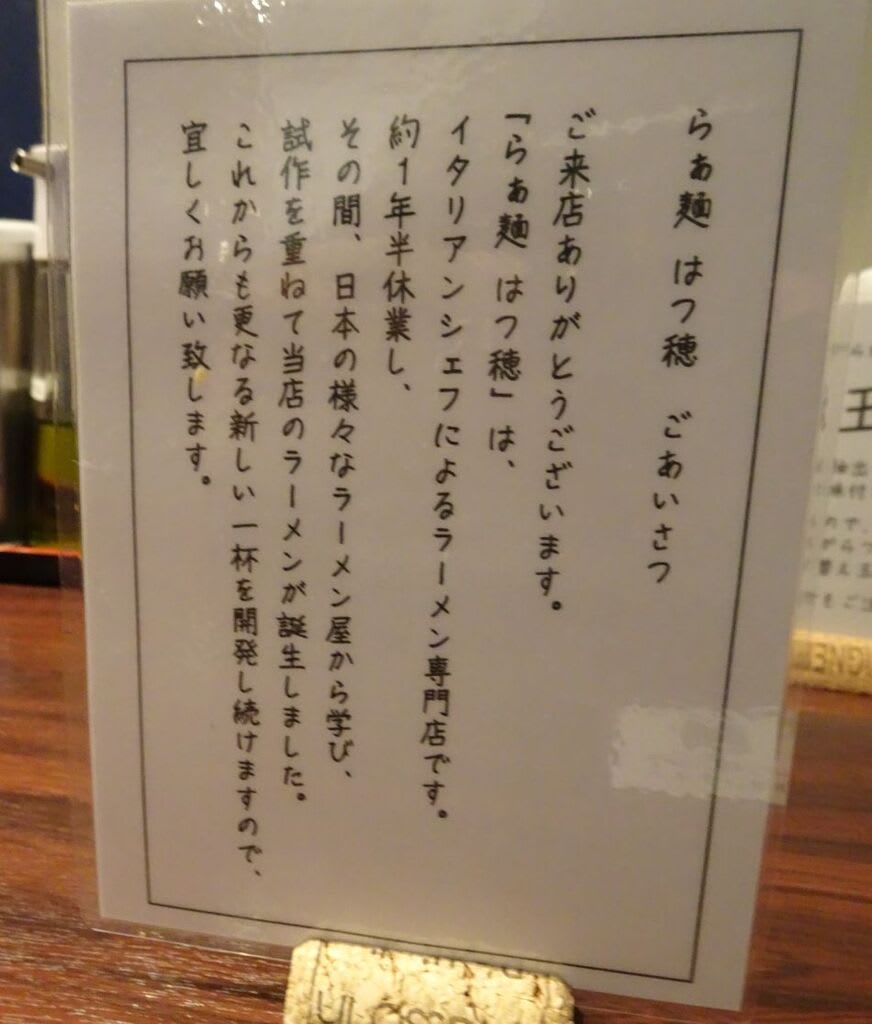 らぁ麺 はつ穂 ごあいさつ
ご来店ありがとうございます。
「らぁ麺 はつ穂」は、
イタリアンシェフによるラーメン専門店です。
約1年半休業し、
その間、日本の様々なラーメン屋から学び、
試作を重ねて当店のラーメンが誕生しました。
これからも更なる新しい一杯を開発し続けますので、
宜しくお願い致します。
王
抽出
味付
ので、
がらつ
替え玉